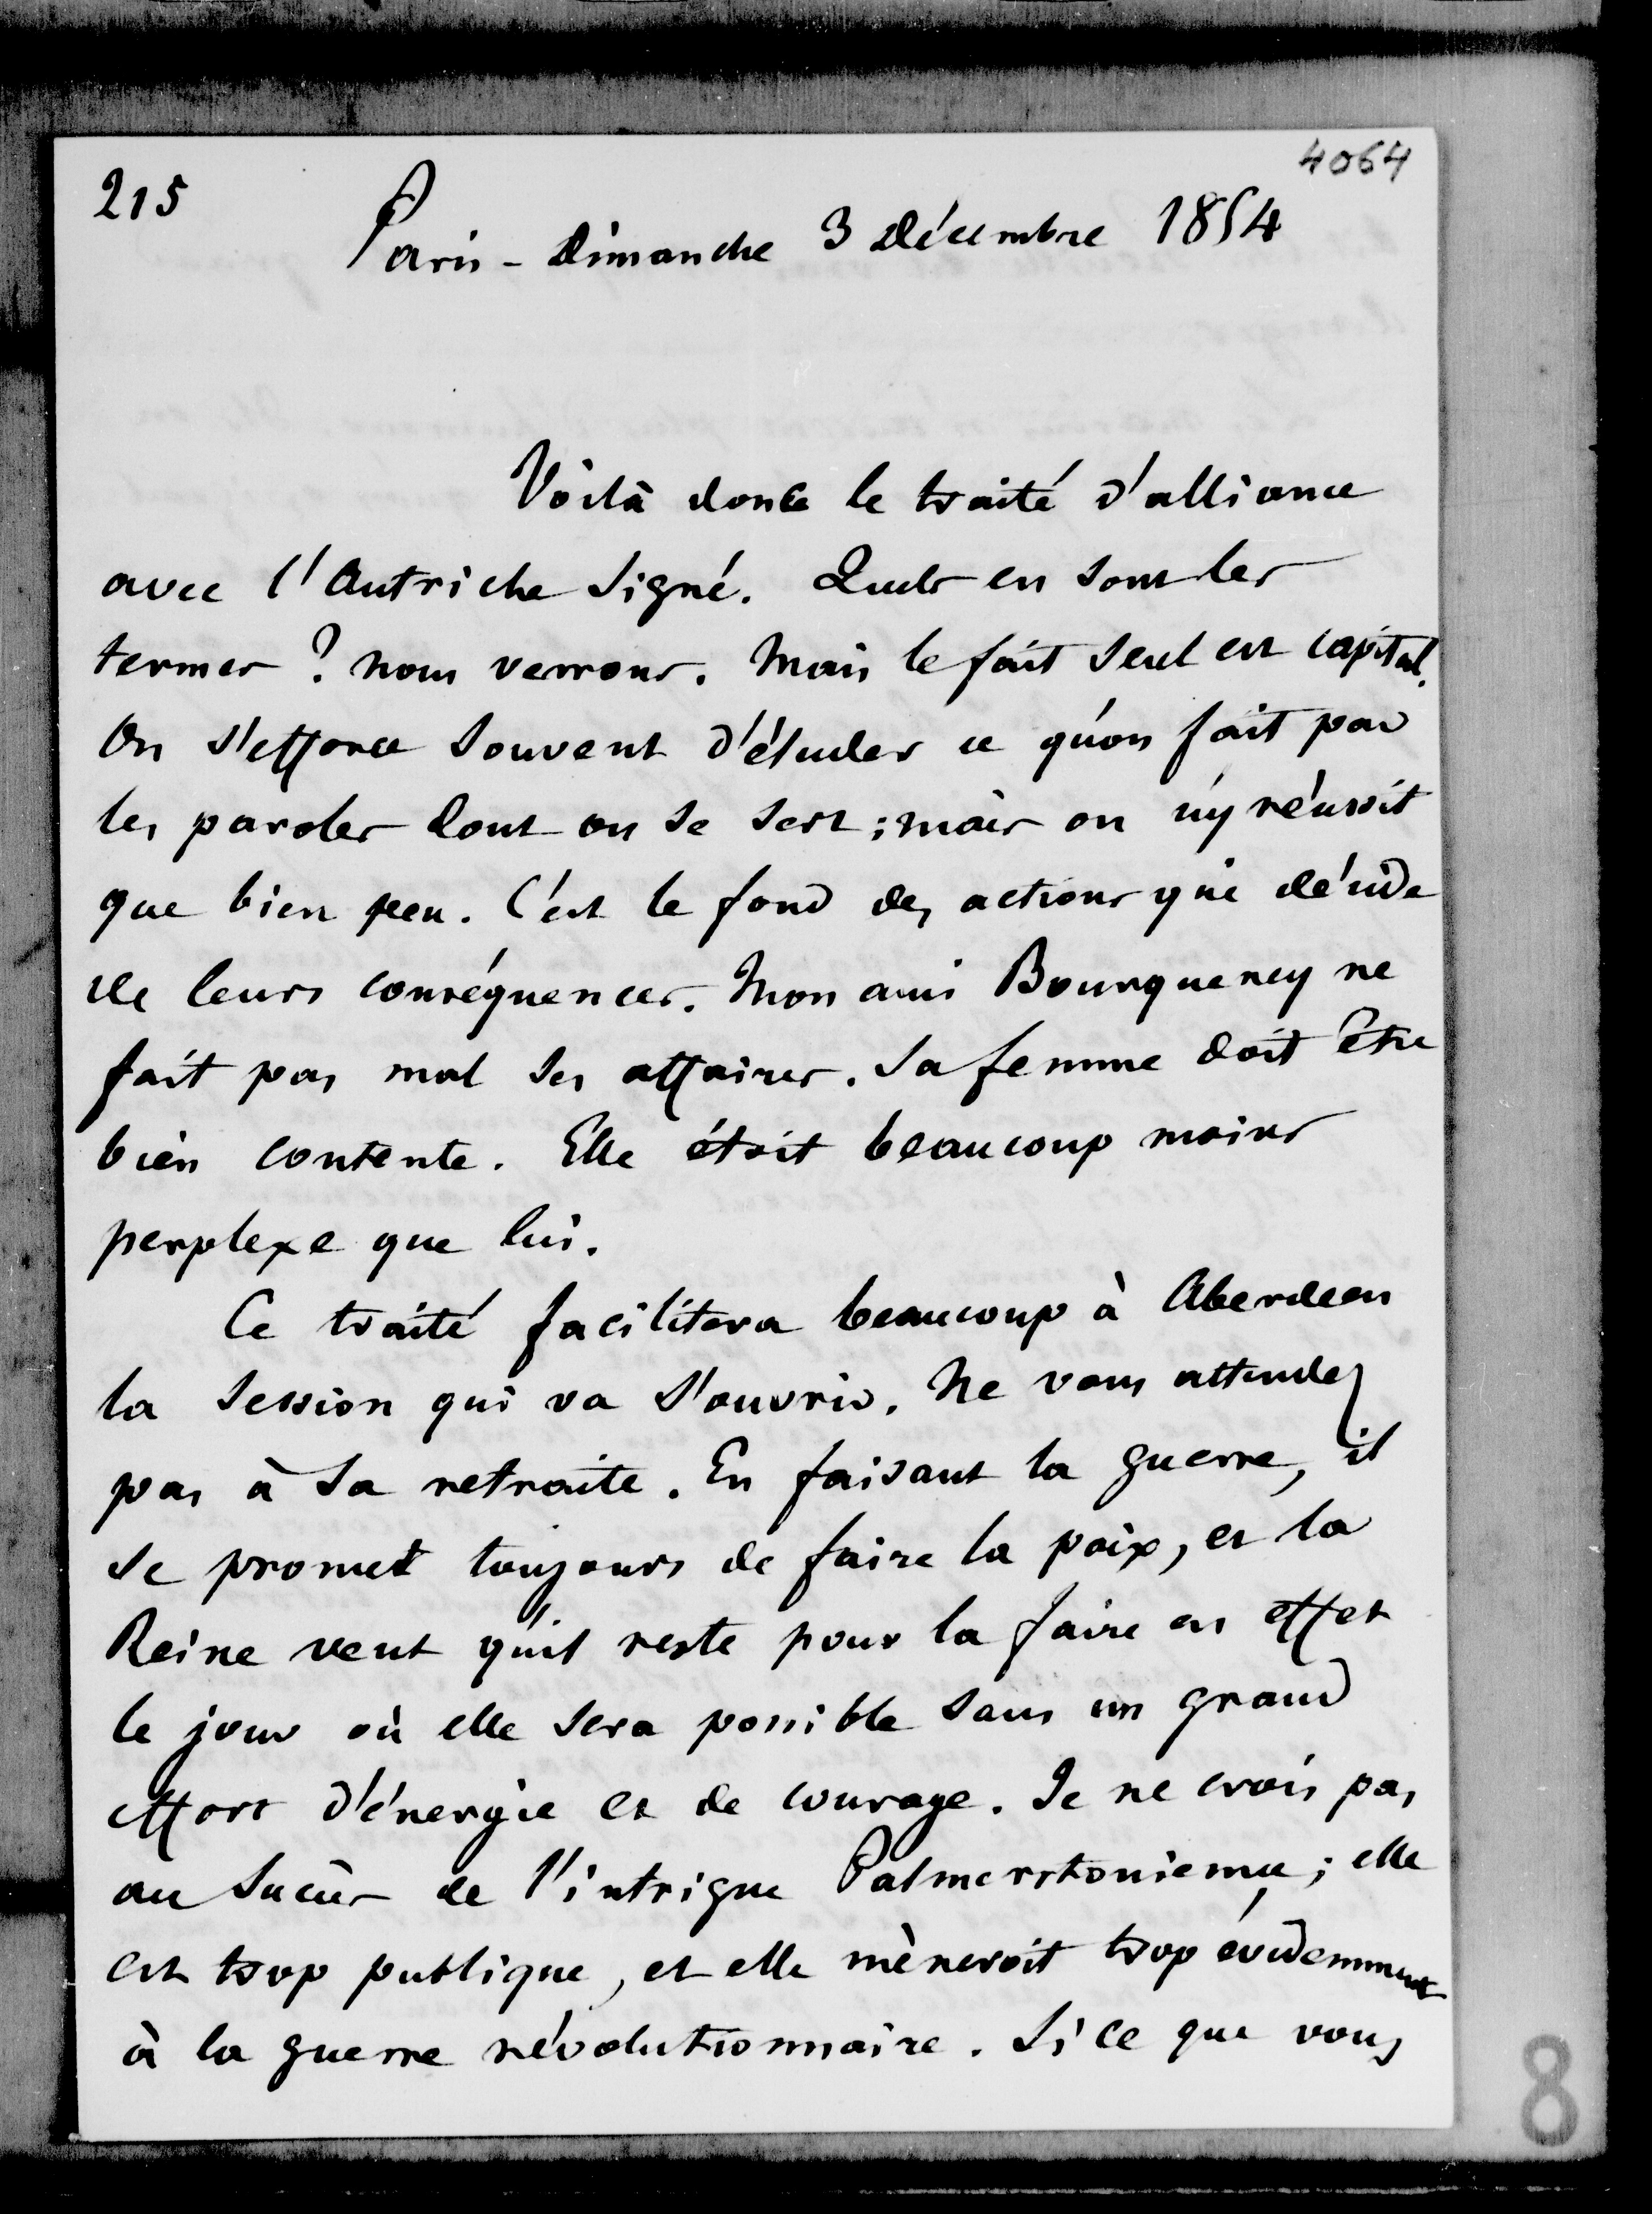 4064
215
Paris - Dimanche 3 Décembre 1854
Voilà donc le traité d'alliance
avec l'Autriche signé. Quels en sont les
termes ? Nous verrons. Mais le fait seul est capital.
On s'efforce souvent d'éluder ce qu'on fait par
les paroles dont on se sert ; mais on n'y réussit
que bien peu. C'est le fond des actions qui décide
de leurs conséquences. Mon ami Bourqueney ne
fait pas mal ses affaires. Sa femme doit être
bien contente. Elle étoit beaucoup moins
perplexe que lui.
Ce traité facilitera beaucoup à Aberdeen
la session qui va s'ouvrir. Ne vous attendez
pas à sa retraite. En faisant la guerre, il
se promet toujours de faire la paix, et la
Reine veut qu'il reste pour la faire en effet
le jour où elle sera possible sans un grand
effort d'énergie et de courage. Je ne crois pas
au succès de l'intrigue Palmerstonienne ; elle
est trop publique, et elle mèneroit trop évidemment
à la guerre révolutionnaire. Si ce que vous
8